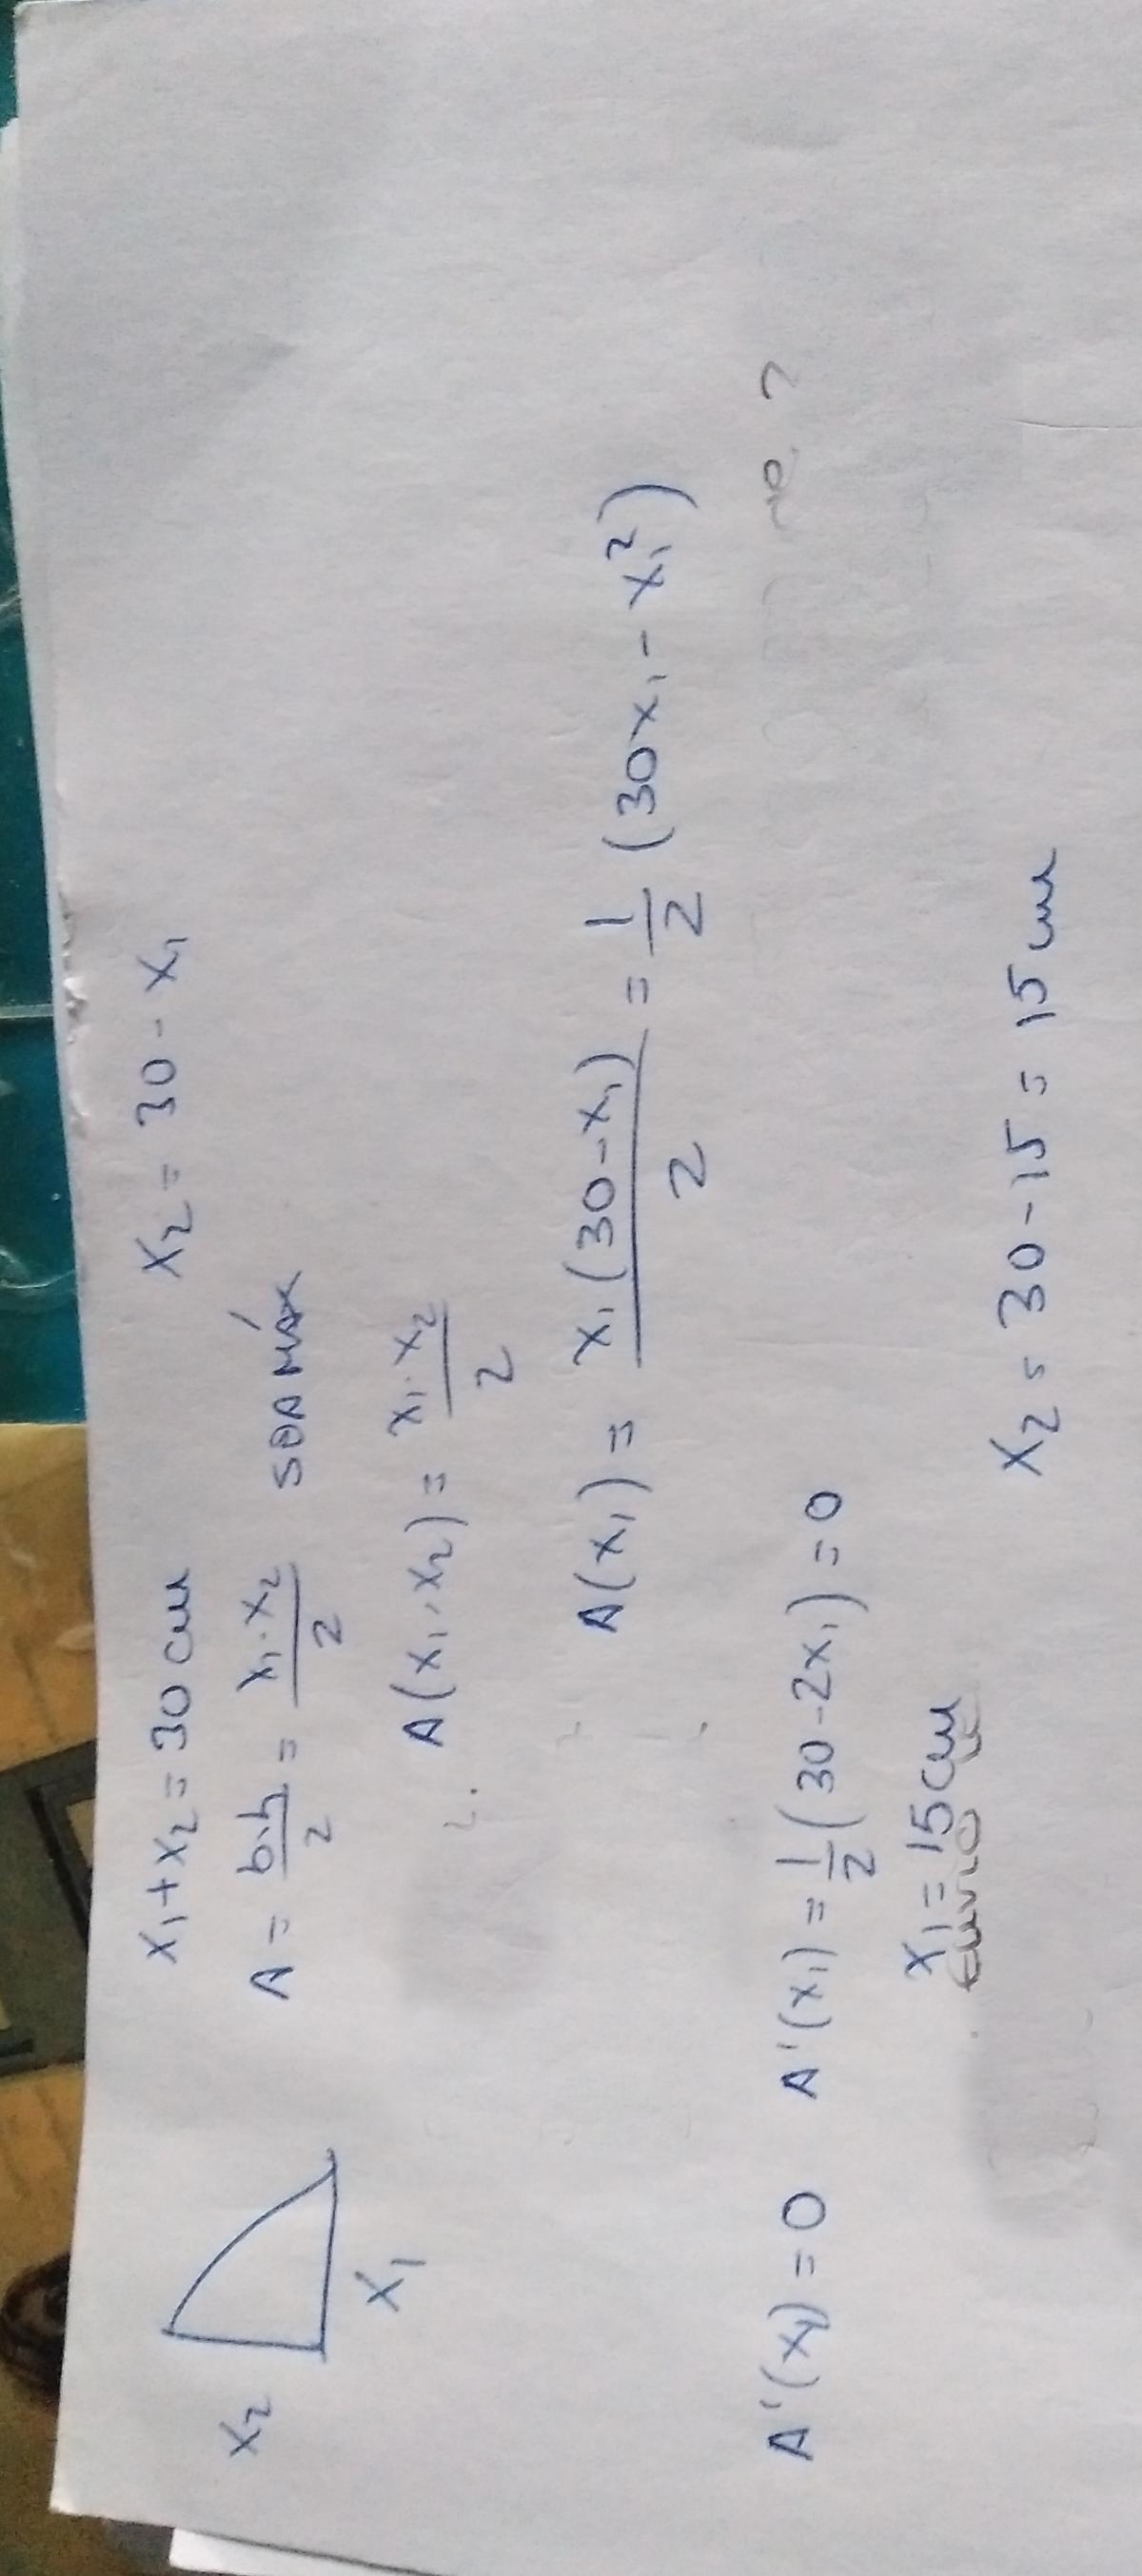 x₁+x₂=30cm x₂=30-x₁
x₂
A = b.h/2 = x₁.x₂/2 SEA MÁX
x₁
A(x₁,x₂) = x₁.x₂/2
A(x₁) = x₁(30-x₁)/2 = 1/2 (30x₁-x₁²)
A'(x₁)=0 A'(x₁)=1/2(30-2x₁)=0
x₁=15cm
x₂=30-15=15cm